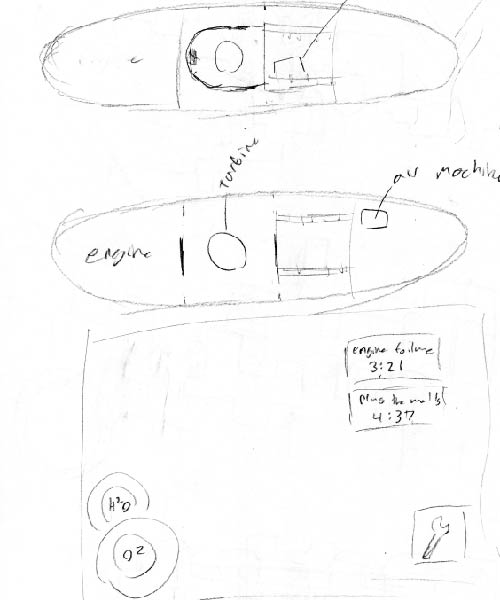 turbine
air machine
engine
engine failure
3:21
the walls
4:37
H²O
O²